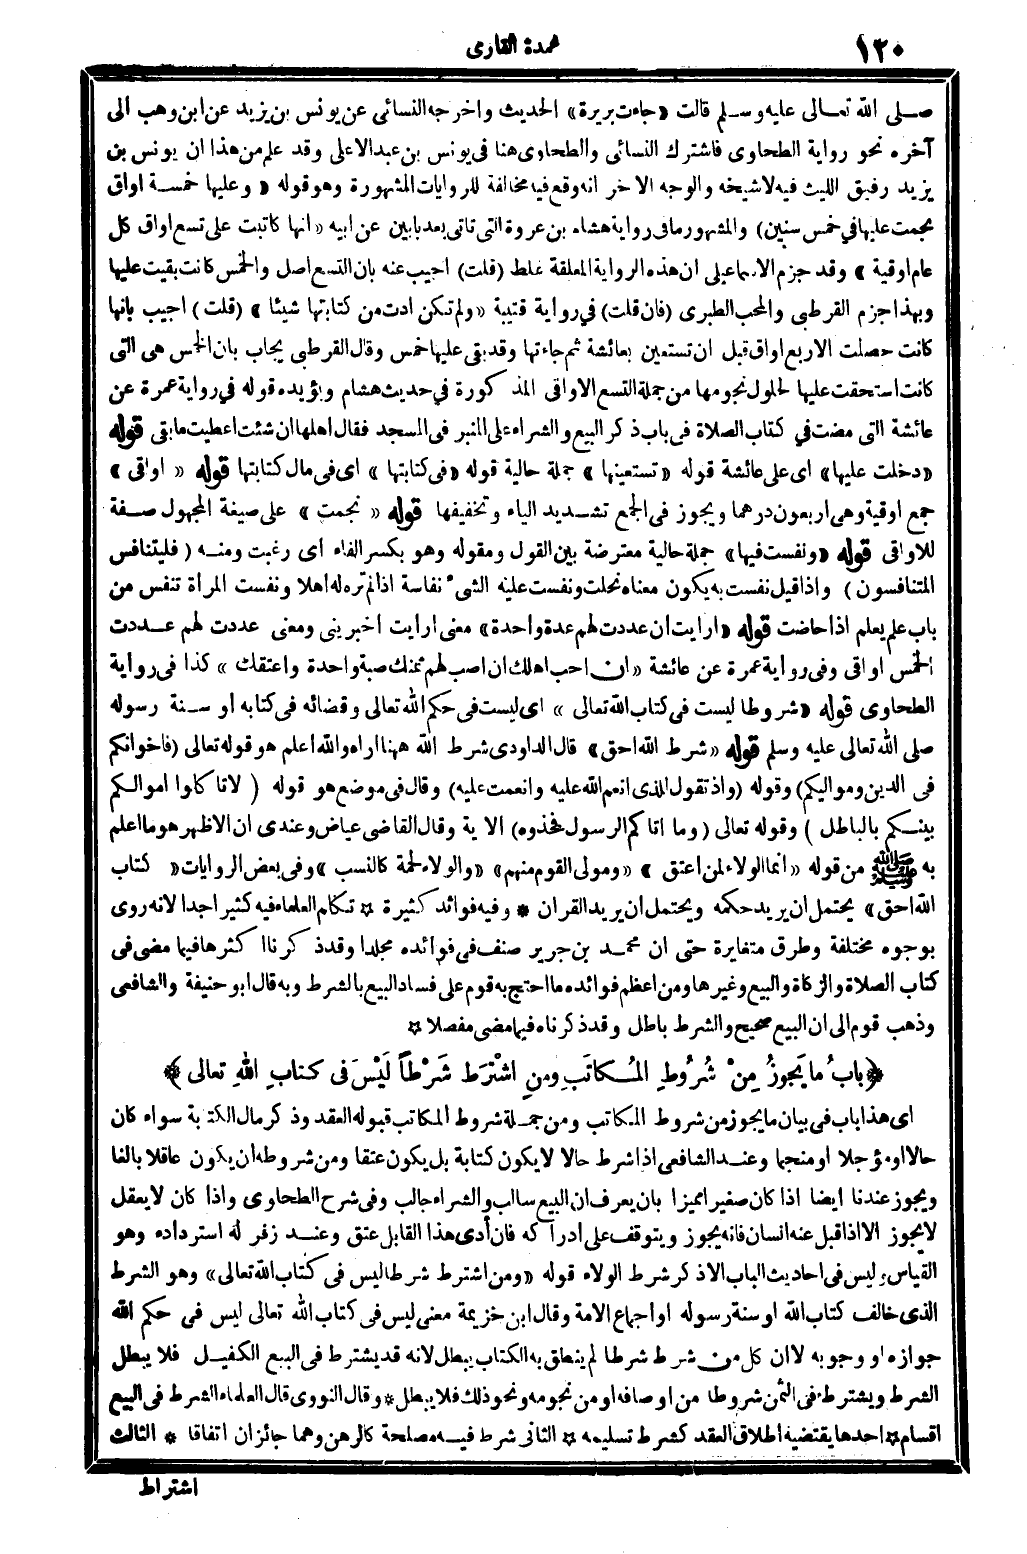 ١٢٠
عمدة القارى
صلى الله تعالى عليه وسلم قالت «جاءت بريرة» الحديث واخرجه النسائى عن يونس بن يزيد عن ابن وهب الى
آخره نحو رواية الطحاوى فاشترك النسائى والطحاوى هنا فى يونس بن عبد الاعلى وقد علم من هذا ان يونس بن
يزيد رفيق الليث فيه لا شيخه والوجه الاخر انه وقع فيه مخالفة للروايات المشهورة وهو قوله « وعليها خمسة اواق
نجمت عليها في خمس سنين) والمشهور ما فى رواية هشام بن عروة التى تاتى بعد بابين عن ابيه «انها كاتبت على تسع اواق كل
عام اوقية » وقد جزم الاسماعيلى ان هذه الرواية المعلقة غلط (قلت) اجيب عنه بان التسع اصل والخمس كانت بقيت عليها
وبهذا جزم القرطبى والمحب الطبرى (فان قلت) في رواية قتيبة «ولم تكن ادت من كتابتها شيئا » (قلت) اجيب بانها
كانت حصلت الاربع اواق قبل ان تستعين بعائشة ثم جاءتها وقد بقى عليها خمس وقال القرطبى يجاب بان الخمس هى التى
كانت استحقت عليها لحلول نجومها من جملة التسع الاواقى المذ كورة في حديث هشام ويؤيده قوله في رواية عمرة عن
عائشة التى مضت في كتاب الصلاة فى باب ذكر البيع والشراء على المنبر فى المسجد فقال اهلها ان شئت اعطيت ما بقى قوله
«دخلت عليها» اى على عائشة قوله «تستعينها» جملة حالية قوله «فى كتابتها » اى فى مال كتابتها قوله « اواقى »
جمع اوقية وهى اربعون درهما ويجوز فى الجمع تشديد الياء وتخفيفها قوله « نجمت » على صيغة المجهول صفة
للاواقى قوله «ونفست فيها» جملة حالية معترضة بين القول ومقوله وهو بكسر الفاء اى رغبت ومنه ( فليتنافس
المتنافسون ) واذا قيل نفست به يكون معناه بخلت ونفست عليه الشىء نفاسة اذا لم تره له اهلا ونفست المراة تنفس من
باب علم يعلم اذا حاضت قوله «ارايت ان عددت لهم عدة واحدة» معنى ارايت اخبرينى ومعنى عددت لهم عددت
الخمس اواقى وفى رواية عمرة عن عائشة «ان احب اهلك ان اصب لهم ثمنك صبة واحدة واعتقك » كذا فى رواية
الطحاوى قوله «شروطا ليست فى كتاب الله تعالى » اى ليست فى حكم الله تعالى وقضائه فى كتابه او سنة رسوله
صلى الله تعالى عليه وسلم قوله «شرط الله احق» قال الداودى شرط الله ههنا اراه والله اعلم هو قوله تعالى (فاخوانكم
فى الدين ومواليكم) وقوله (واذ تقول للذى انعم الله عليه وانعمت عليه) وقال فى موضع هو قوله ( لا تاكلوا اموالكم
بينكم بالباطل ) وقوله تعالى (وما اتاكم الرسول فخذوه) الاية وقال القاضى عياض وعندى ان الاظهر هو ما اعلم
به ﷺ من قوله «انما الولاء لمن اعتق » «ومولى القوم منهم» «والولاء لحمة كالنسب »وفى بعض الروايات« كتاب
الله احق» يحتمل ان يريد حكمه ويحتمل ان يريد القران * وفيه فوائد كثيرة * تكلم العلماء فيه كثيرا جدا لانه روى
بوجوه مختلفة وطرق متغايرة حتى ان محمد بن جرير صنف فى فوائده مجلدا وقد ذكرنا اكثرها فيما مضى فى
كتاب الصلاة والزكاة والبيع وغيرها ومن اعظم فوائده ما احتج به قوم على فساد البيع بالشرط وبه قال ابو حنيفة والشافعى
وذهب قوم الى ان البيع صحيح والشرط باطل وقد ذكرناه فيما مضى مفصلا *
*﴿ بابُ ما يَجوزُ مِنْ شُرُوطِ المُكاتَبِ ومنِ اشْتَرَط شَرْطاً لَيْسَ فى كتابِ اللهِ تعالى ﴾*
اى هذا باب فى بيان ما يجوز من شروط المكاتب ومن جملة شروط المكاتب قبوله العقد وذكر مال الكتابة سواء كان
حالا او مؤجلا او منجما وعند الشافعى اذا شرط حالا لا يكون كتابة بل يكون عتقا ومن شروطه ان يكون عاقلا بالغا
ويجوز عندنا ايضا اذا كان صغيرا مميزا بان يعرف ان البيع سالب والشراء جالب وفى شرح الطحاوى واذا كان لا يعقل
لا يجوز الا اذا قبل عنه انسان فانه يجوز ويتوقف على ادراكه فان أدى هذا القابل عتق وعند زفر له استرداده وهو
القياس وليس فى احاديث الباب الا ذكر شرط الولاء قوله «ومن اشترط شرطا ليس فى كتاب الله تعالى» وهو الشرط
الذى خالف كتاب الله او سنة رسوله او اجماع الامة وقال ابن خزيمة معنى ليس فى كتاب الله تعالى ليس فى حكم الله
جوازه او وجوبه لا ان كل من شرط شرطا لم ينطق به الكتاب يبطل لانه قد يشترط فى البيع الكفيل فلا يبطل
الشرط ويشترط فى الثمن شروطا من اوصافه او من نجومه ونحو ذلك فلا يبطل * وقال النووى قال العلماء الشرط فى البيع
اقسام * احدها يقتضيه اطلاق العقد كشرط تسليمه * الثانى شرط فيه مصلحة كالرهن وهما جائزان اتفاقا * الثالث
اشتراط